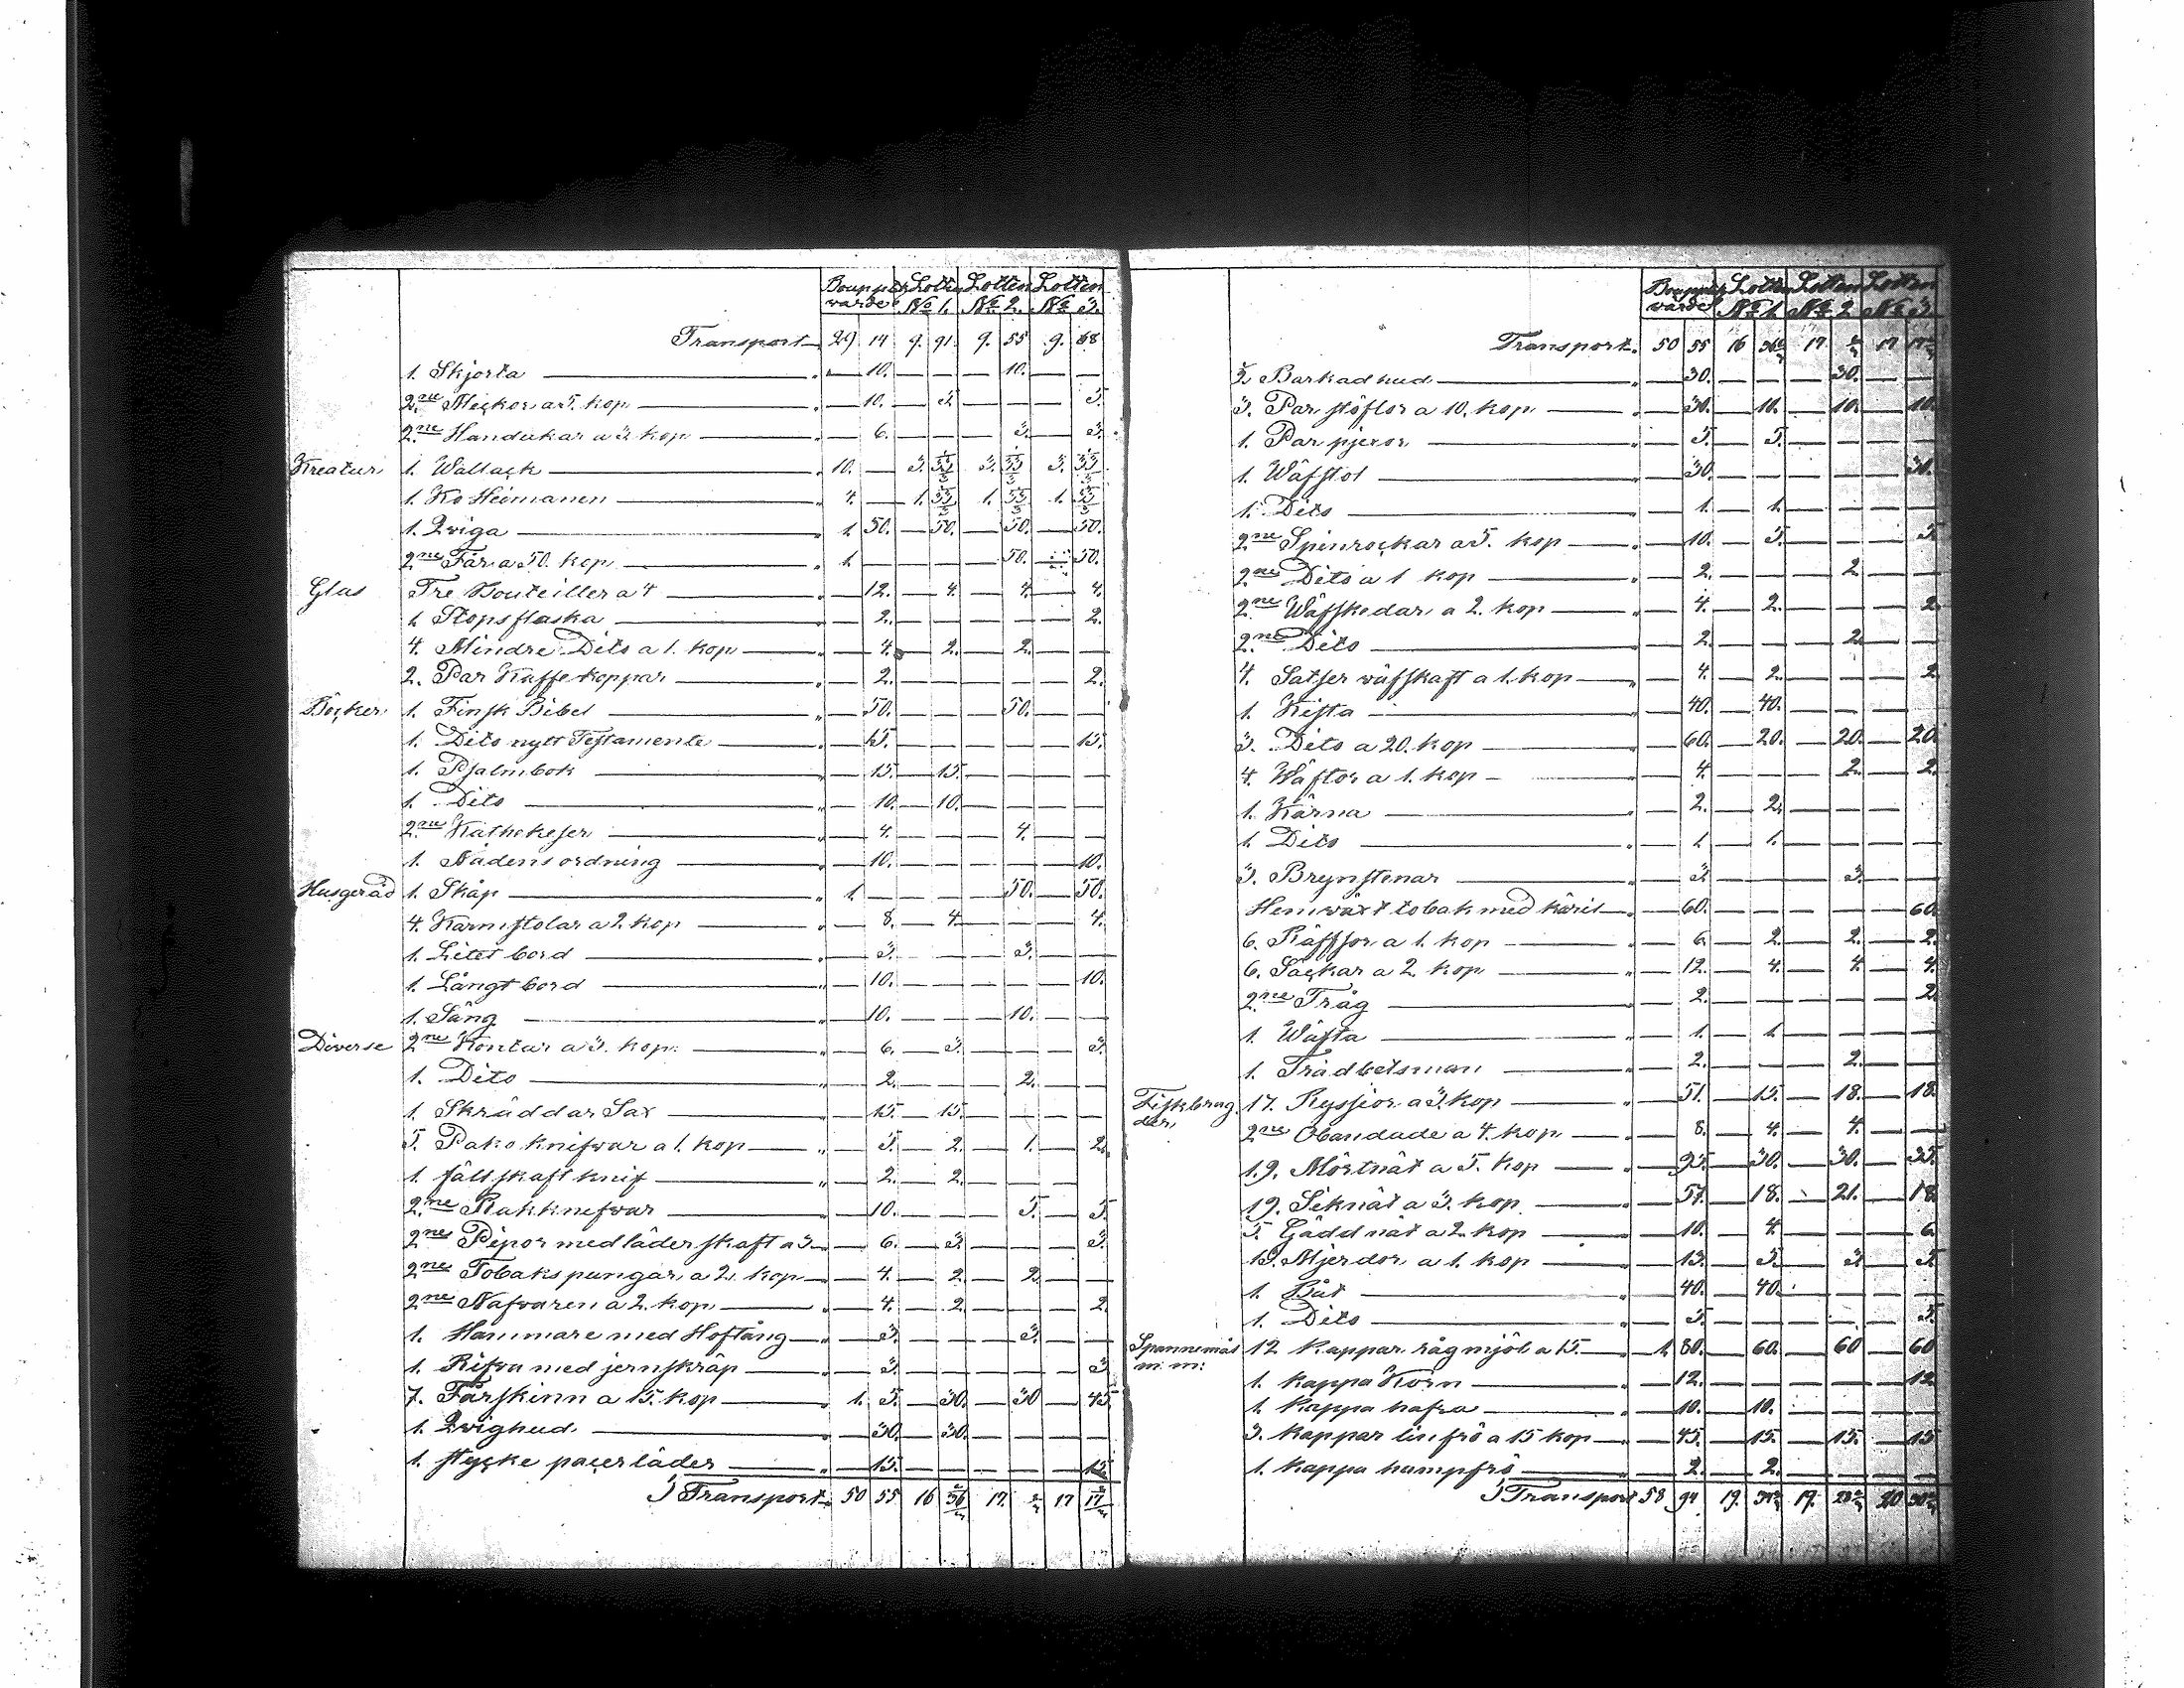 Bouppt. Lotten Lotten Lotten
värde No 1. No 2. No 3.
Transport 29 14 9. 91. 9. 55 9. 68
1. Skjorta — 10. — — — 10. — —
2ne Meckor a 5. kop — 10. — 5. — — — 5.
2ne Handukar a 3. kop — 6. — — — 3. — 3.
Kreatur 1. Wallack 10. — 3. 33 1/3 3. 33 1/3 3. 33 1/3
1. Ko Heimanen 4. — 1. 33 1/3 1. 33 1/3 1. 33 1/3
1. Qviga 1. 50. — 50. — 50. — 50.
2ne Får a 50. kop 1. — — — — 50. — 50.
Glas Tre Bouteiller a 4 — 12. — 4. — 4. — 4.
1. Stopsflaska — 2. — — — — — 2.
4. Mindre Dito a 1. kop — 4. — 2. — 2. — —
2. Par Kaffekoppar — 2. — — — — — 2.
Böcker 1. Finsk Bibel — 50. — — — 50. — —
1. Dito nytt Testamente — 15. — — — — — 15.
1. Psalmbok — 15. — 15. — — — —
1. Dito — 10. — 10. — — — —
2ne Kathekeser — 4. — — — 4. — —
1. Nådens ordning — 10. — — — — — 10.
Husgeråd 1. Skåp 1. — — — — 50. — 50.
4. Karmstolar a 2. kop — 8. — 4. — — — 4.
1. Litet bord — 3. — — — 3. — —
1. Långt bord — 10. — — — — — 10.
1. Säng — 10. — — — 10. — —
Diverse 2ne Kontar a 3. kop. — 6. — 3. — — — 3.
1. Dito — 2. — — — 2. — —
1. Skräddar Sax — 15. — 15. — — — —
5. Pako knifvar a 1. kop — 5. — 2. — 1. — 2.
1. fällskaft knif — 2. — 2. — — — —
2ne Rakknefvar — 10. — — — 5. — 5.
2ne Pipor med läderskaft a 3 — 6. — 3. — — — 3.
2ne Tobakspungar a 2. kop — 4. — 2. — 2. — —
2ne Nafvaren a 2. kop — 4. — 2. — — — 2.
1. Hammare med Hoftång — 3. — — — 3. — —
1. Rifva med jernskråp — 3. — — — — — 3.
7. Fårskinn a 15. kop 1. 5. — 30. — 30 — 45
1. Qvighud — 30. — 30. — — — —
1. stycke läder — 15. — — — — — 15.
Transport 50 55 16 36 17. 17 17
Bouppt. Lotten Lotten Lotten
värde No 1. No 2. No 3.
Transport. 50 55 16 36 17. 17 17
1/2 Barkad hud — 30. — — — 30. — —
3. Par stöflor a 10. kop — 30. — 10. — 10. — 10.
1. Par pjexor — 5. — 5. — — — —
1. Wäfstol — 30. — — — — — 30.
1. Dito — 1. — 1. — — — —
2ne Spinrockar a 5. kop — 10. — 5. — — — 5.
2ne Dito a 1 kop — 2. — — — 2. — —
2ne Wäfskedar a 2. kop — 4. — 2. — — — 2.
2ne Dito — 2. — — — 2. — —
4. Satser wäfskaft a 1. kop — 4. — 2. — — — 2.
1. Kista — 40. — 40. — — — —
3. Dito a 20. kop — 60. — 20. — 20. — 20.
4. Wäftor a 1. kop — 4. — — — 2. — 2.
1. Kärna — 2. — 2. — — — —
1. Dito — 1. — 1. — — — —
3. Brynstenar — 3. — — — 3. — —
Hemwäxt tobak med käril — 60. — — — — — 60.
6. Räffsor a 1. kop — 6. — 2. — 2. — 2.
6. Säckar a 2. kop — 12. — 4. — 4. — 4.
2ne Tråg — 2. — — — — — 2.
1. Wäfta — 1. — 1. — — — —
1. Trädbetsman — 2. — — — 2. — —
Fiskbrag 17. Ryssjor a 3. kop — 51. — 15. — 18. — 18.
der, 2ne Obandade a 4. kop — 8. — 4. — 4. — —
19. Mörtnät a 5. kop — 95. — 30. — 30. — 35.
19. Siknät a 3. kop — 57. — 18. — 21. — 18.
5. Gäddnät a 2. kop — 10. — 4. — — — 6.
13. Mjerdor a 1. kop — 13. — 5. — 3. — 5.
1. Båt — 40. — 40. — — — —
1. Dito — 5. — — — — — 5.
Spannemål 12 Kappar rågmjöl a 15. 1. 80. — 60. — 60 — 60
m: m: 1. kappa Korn — 12. — — — — — 12
1. Kappa hafra — 10. — 10. — — — —
3. kappar linfrö a 15 kop — 45. — 15. — 15. — 15
1. kappa hampfrö — 2. — 2. — — — —
Transport 58 94 19. 19. 20